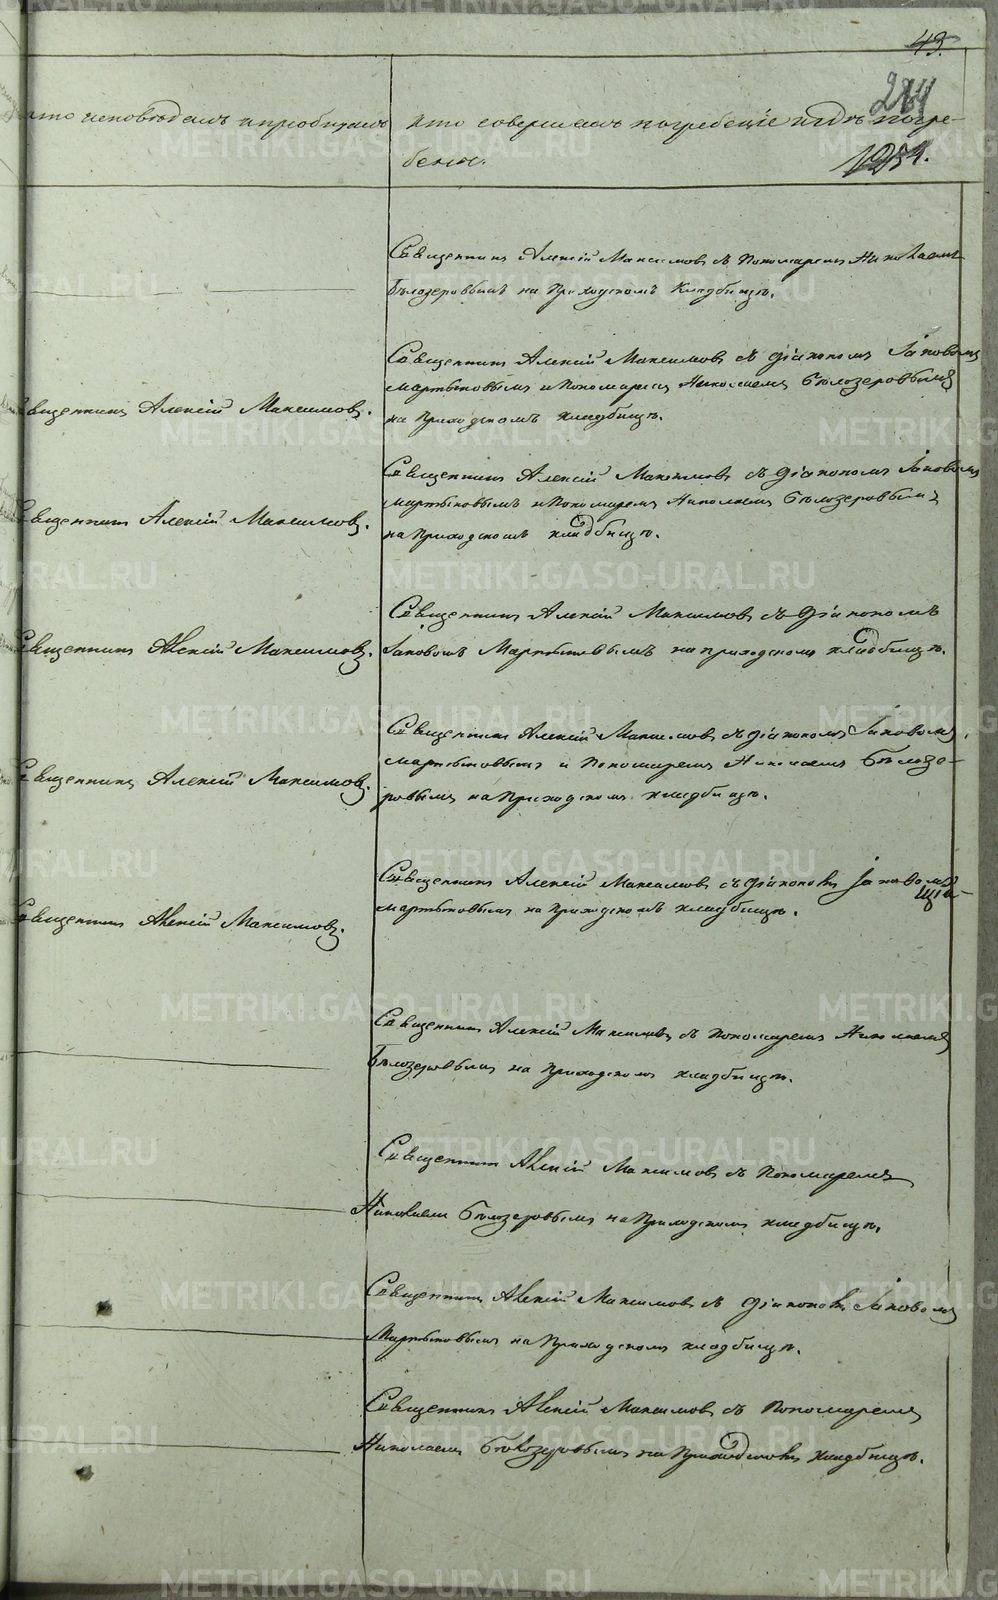 43.
284
кто исповѣдалъ и приобщалъ
кто совершалъ погребеніе и гдѣ погре-
бены.
Священникъ Алексій Максимовъ съ Пономаремъ Николаемъ
Бѣлозеровымъ на Приходскомъ Кладбищѣ.
Священникъ Алексій Максимовъ съ Діакономъ Іаковомъ
Мартыновымъ и Пономаремъ Николаемъ Бѣлозеровымъ
на Приходскомъ кладбищѣ.
вященникъ Алексій Максимовъ.
Священникъ Алексій Максимовъ съ Діакономъ Іаковомъ
Мартыновымъ и Пономаремъ Николаемъ Бѣлозеровымъ
на Приходскомъ кладбищѣ.
вященникъ Алексій Максимовъ.
Священникъ Алексій Максимовъ съ Діакономъ
Іаковомъ Мартыновымъ на приходскомъ кладбищѣ.
Священникъ Алексій Максимовъ.
Священникъ Алексій Максимовъ съ Діакономъ Іаковомъ
Мартыновымъ и Пономаремъ Николаемъ Бѣлозе-
ровымъ на Приходскомъ кладбищѣ.
Священникъ Алексій Максимовъ.
Священникъ Алексій Максимовъ съ Діакономъ Іаковомъ
Мартыновымъ на Приходскомъ кладбищѣ.
Священникъ Алексій Максимовъ.
Священникъ Алексій Максимовъ съ Пономаремъ Николаемъ
Бѣлозеровымъ на Приходскомъ кладбищѣ.
Священникъ Алексій Максимовъ съ Пономаремъ
Николаемъ Бѣлозеровымъ на Приходскомъ кладбищѣ.
Священникъ Алексій Максимовъ съ Діакономъ Іаковомъ
Мартыновымъ на Приходскомъ кладбищѣ.
Священникъ Алексій Максимовъ съ Пономаремъ
Николаемъ Бѣлозеровымъ на Приходскомъ кладбищѣ.
METRIKI.GASO-URAL.RU